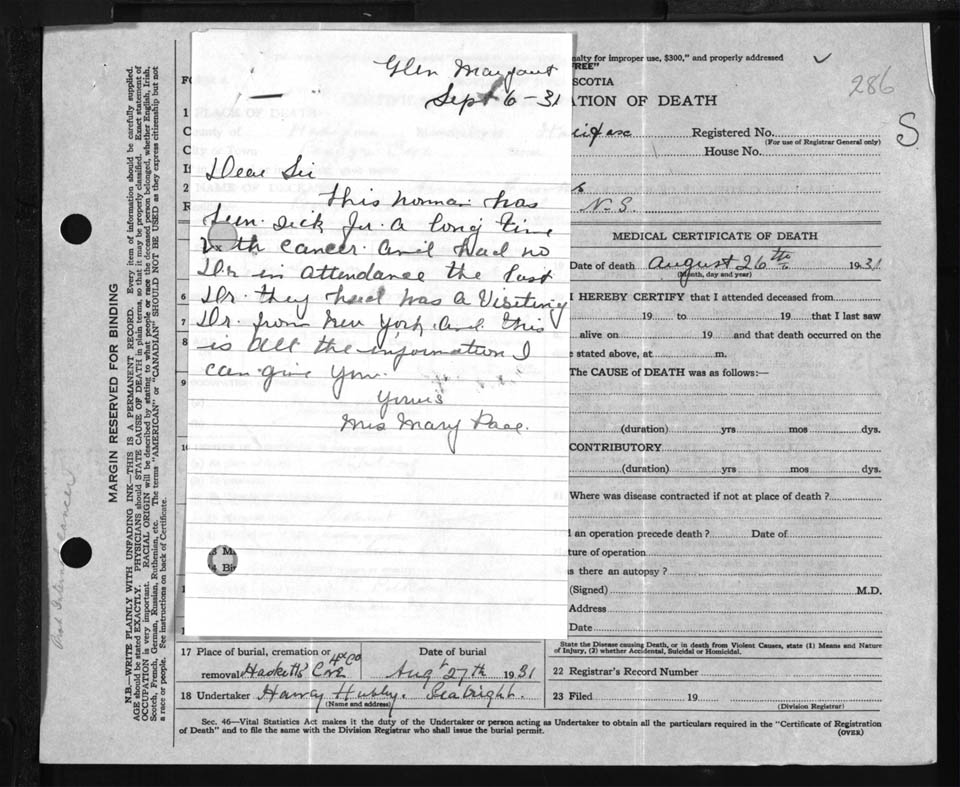 Glen Margaret
Sept 6-31
Dear Sir
This woman has
been sick for a long time
with cancer and had no
Dr in attendance the last
Dr. they had was a Visiting
Dr. from New York and this
is all the information I
can give you.
Yours
Mrs Mary
alty for improper use, $300," and properly addressed
FREE"
SCOTIA
286
ATION OF DEATH
S
Registered No.
(For use of Registrar General only)
House No.
N-S
MEDICAL CERTIFICATE OF DEATH
Date of death August 26th 1931
(Month, day and year)
I HEREBY CERTIFY that I attended deceased from
19 to 19 that I last saw
alive on 19 and that death occurred on the
e stated above, at m.
The CAUSE of DEATH was as follows:—
(duration) yrs mos dys.
CONTRIBUTORY
(duration) yrs mos dys.
Where was disease contracted if not at place of death ?
an operation precede death ? Date of
ture of operation
s there an autopsy ?
(Signed) M.D.
Address
Date
State the Disease causing Death, or in death from Violent Causes, state (1) Means and Nature
of Injury, (2) whether Accidental, Suicidal or Homicidal.
22 Registrar's Record Number
23 Filed 19
(Division Registrar)
1
2
6
7
8
9
3 M
4 Bir
17 Place of burial, cremation or
removal Hacketts Cove
Date of burial
Aug 27th 1931
18 Undertaker Harry Hubley. Seabright.
(Name and address)
Sec. 46—Vital Statistics Act makes it the duty of the Undertaker or person acting as Undertaker to obtain all the particulars required in the "Certificate of Registration
of Death" and to file the same with the Division Registrar who shall issue the burial permit.
(OVER)
MARGIN RESERVED FOR BINDING
N.B.—WRITE PLAINLY WITH UNFADING INK—THIS IS A PERMANENT RECORD. Every item of information should be carefully supplied.
AGE should be stated EXACTLY. PHYSICIANS should STATE CAUSE OF DEATH in plain terms, so that it may be properly classified. Exact statement of
OCCUPATION is very important. RACIAL ORIGIN will be described by stating to what people or race the deceased person belonged, whether English, Irish,
Scotch, French, German, Russian, Ruthenian, etc. The terms "AMERICAN" or "CANADIAN" SHOULD NOT BE USED as they express citizenship but not
a race or people. See instructions on back of Certificate.